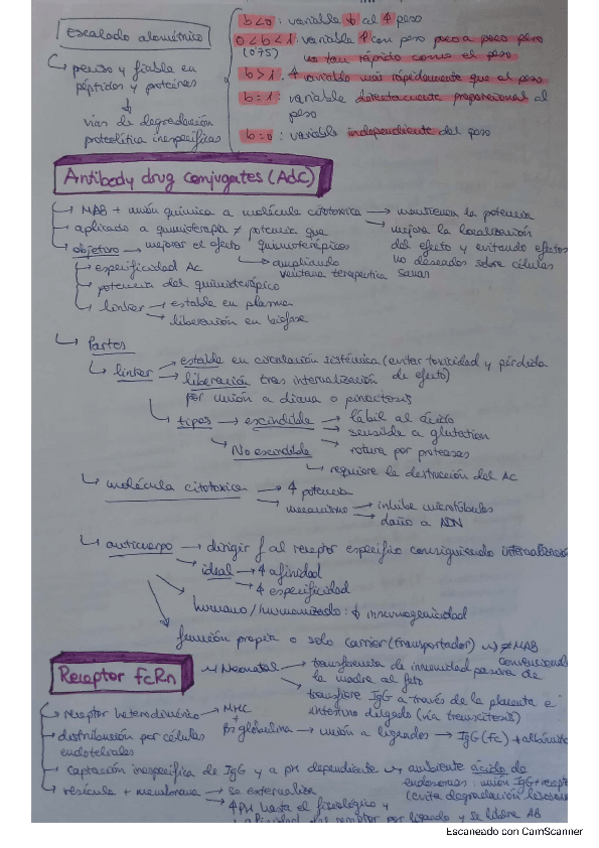 Escalado alométrico
↳ preciso y fiable en
péptidos y proteínas
↓
vías de degradación
proteolítica inespecíficas
b<0: variable ↓ al ↑ peso
0<b<1: variable ↑ con peso poco a poco pero
(0'75) no tan rápido como el peso
b>1: ↑ variable más rápidamente que al peso
b=1: variable directamente proporcional al
peso
b=0: variable independiente del peso
Antibody drug conjugates (AdC)
↳ MAB + unión química a molécula citotóxica → mantienen la potencia
↳ aplicado a quimioterapia ≠ potencia que → mejora la localización
↳ objetivo → mejorar el efecto quimioterápicos del efecto y evitando efectos
↳ ampliando no deseados sobre células
ventana terapeútica sanas
↳ especificidad Ac
↳ potencia del quimioterápico
↳ linker → estable en plasma
↳ liberación en biofase
↳ Partes
↳ linker → estable en circulación sistémica (evitar toxicidad y pérdida
→ liberación tras internalización de efecto)
por unión a diana o pinocitosis
↳ tipos → escindible → lábil al ácido
→ sensible a glutation
→ rotura por proteasas
↳ No escindible
↳ requiere la destrucción del Ac
↳ molécula citotóxica → ↑ potencia
→ mecanismo → inhibe microtúbulos
→ daño a ADN
↳ anticuerpo → dirigir f al receptor específico consiguiendo internalización
→ ideal → ↑ afinidad
→ ↑ especificidad
humano/humanizado: ↓ inmunogenicidad
función propia o solo carrier (transportador) ≠ MAB
convencional
Receptor FcRn
↳ Neonatal → transferencia de inmunidad pasiva de
la madre al feto
→ transfiere IgG a través de la placenta e
intestino delgado (vía transcitosis)
↳ receptor heterodimérico → MHC
+
β2 globulina → unión a ligandos → IgG (Fc) + albúmina
↳ distribución por células
endoteliales
↳ captación inespecífica de IgG y a pH dependiente → ambiente ácido de
endosomas: unión IgG + recept
(evita degradación lisosom
↳ vesícula + membrana → se externaliza
→ ↑ pH hasta el fisiológico y
receptor por ligando y se libera AB
Escaneado con CamScanner